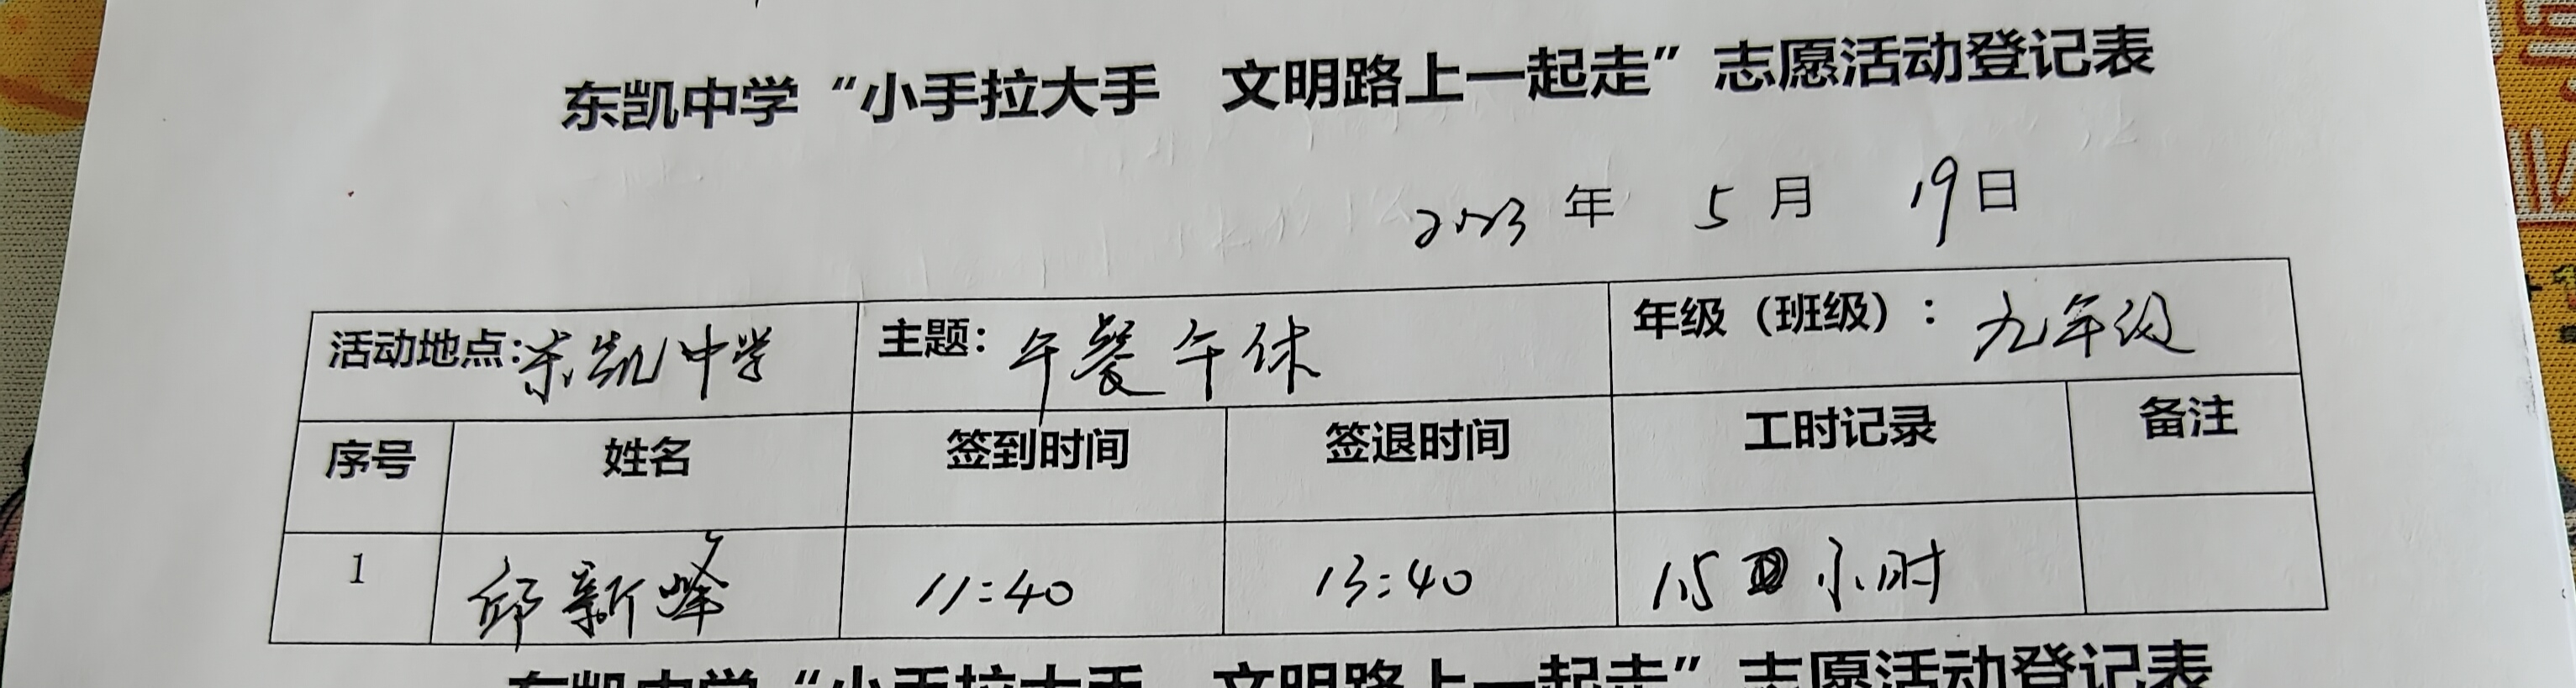 东凯中学“小手拉大手 文明路上一起走”志愿活动登记表
2023年 5月 19日
活动地点:东凯中学 主题：午餐午休 年级（班级）：九年级
序号 姓名 签到时间 签退时间 工时记录 备注
1 邱新峰 11:40 13:40 1.5 小时
东凯中学“小手拉大手 文明路上一起走”志愿活动登记表